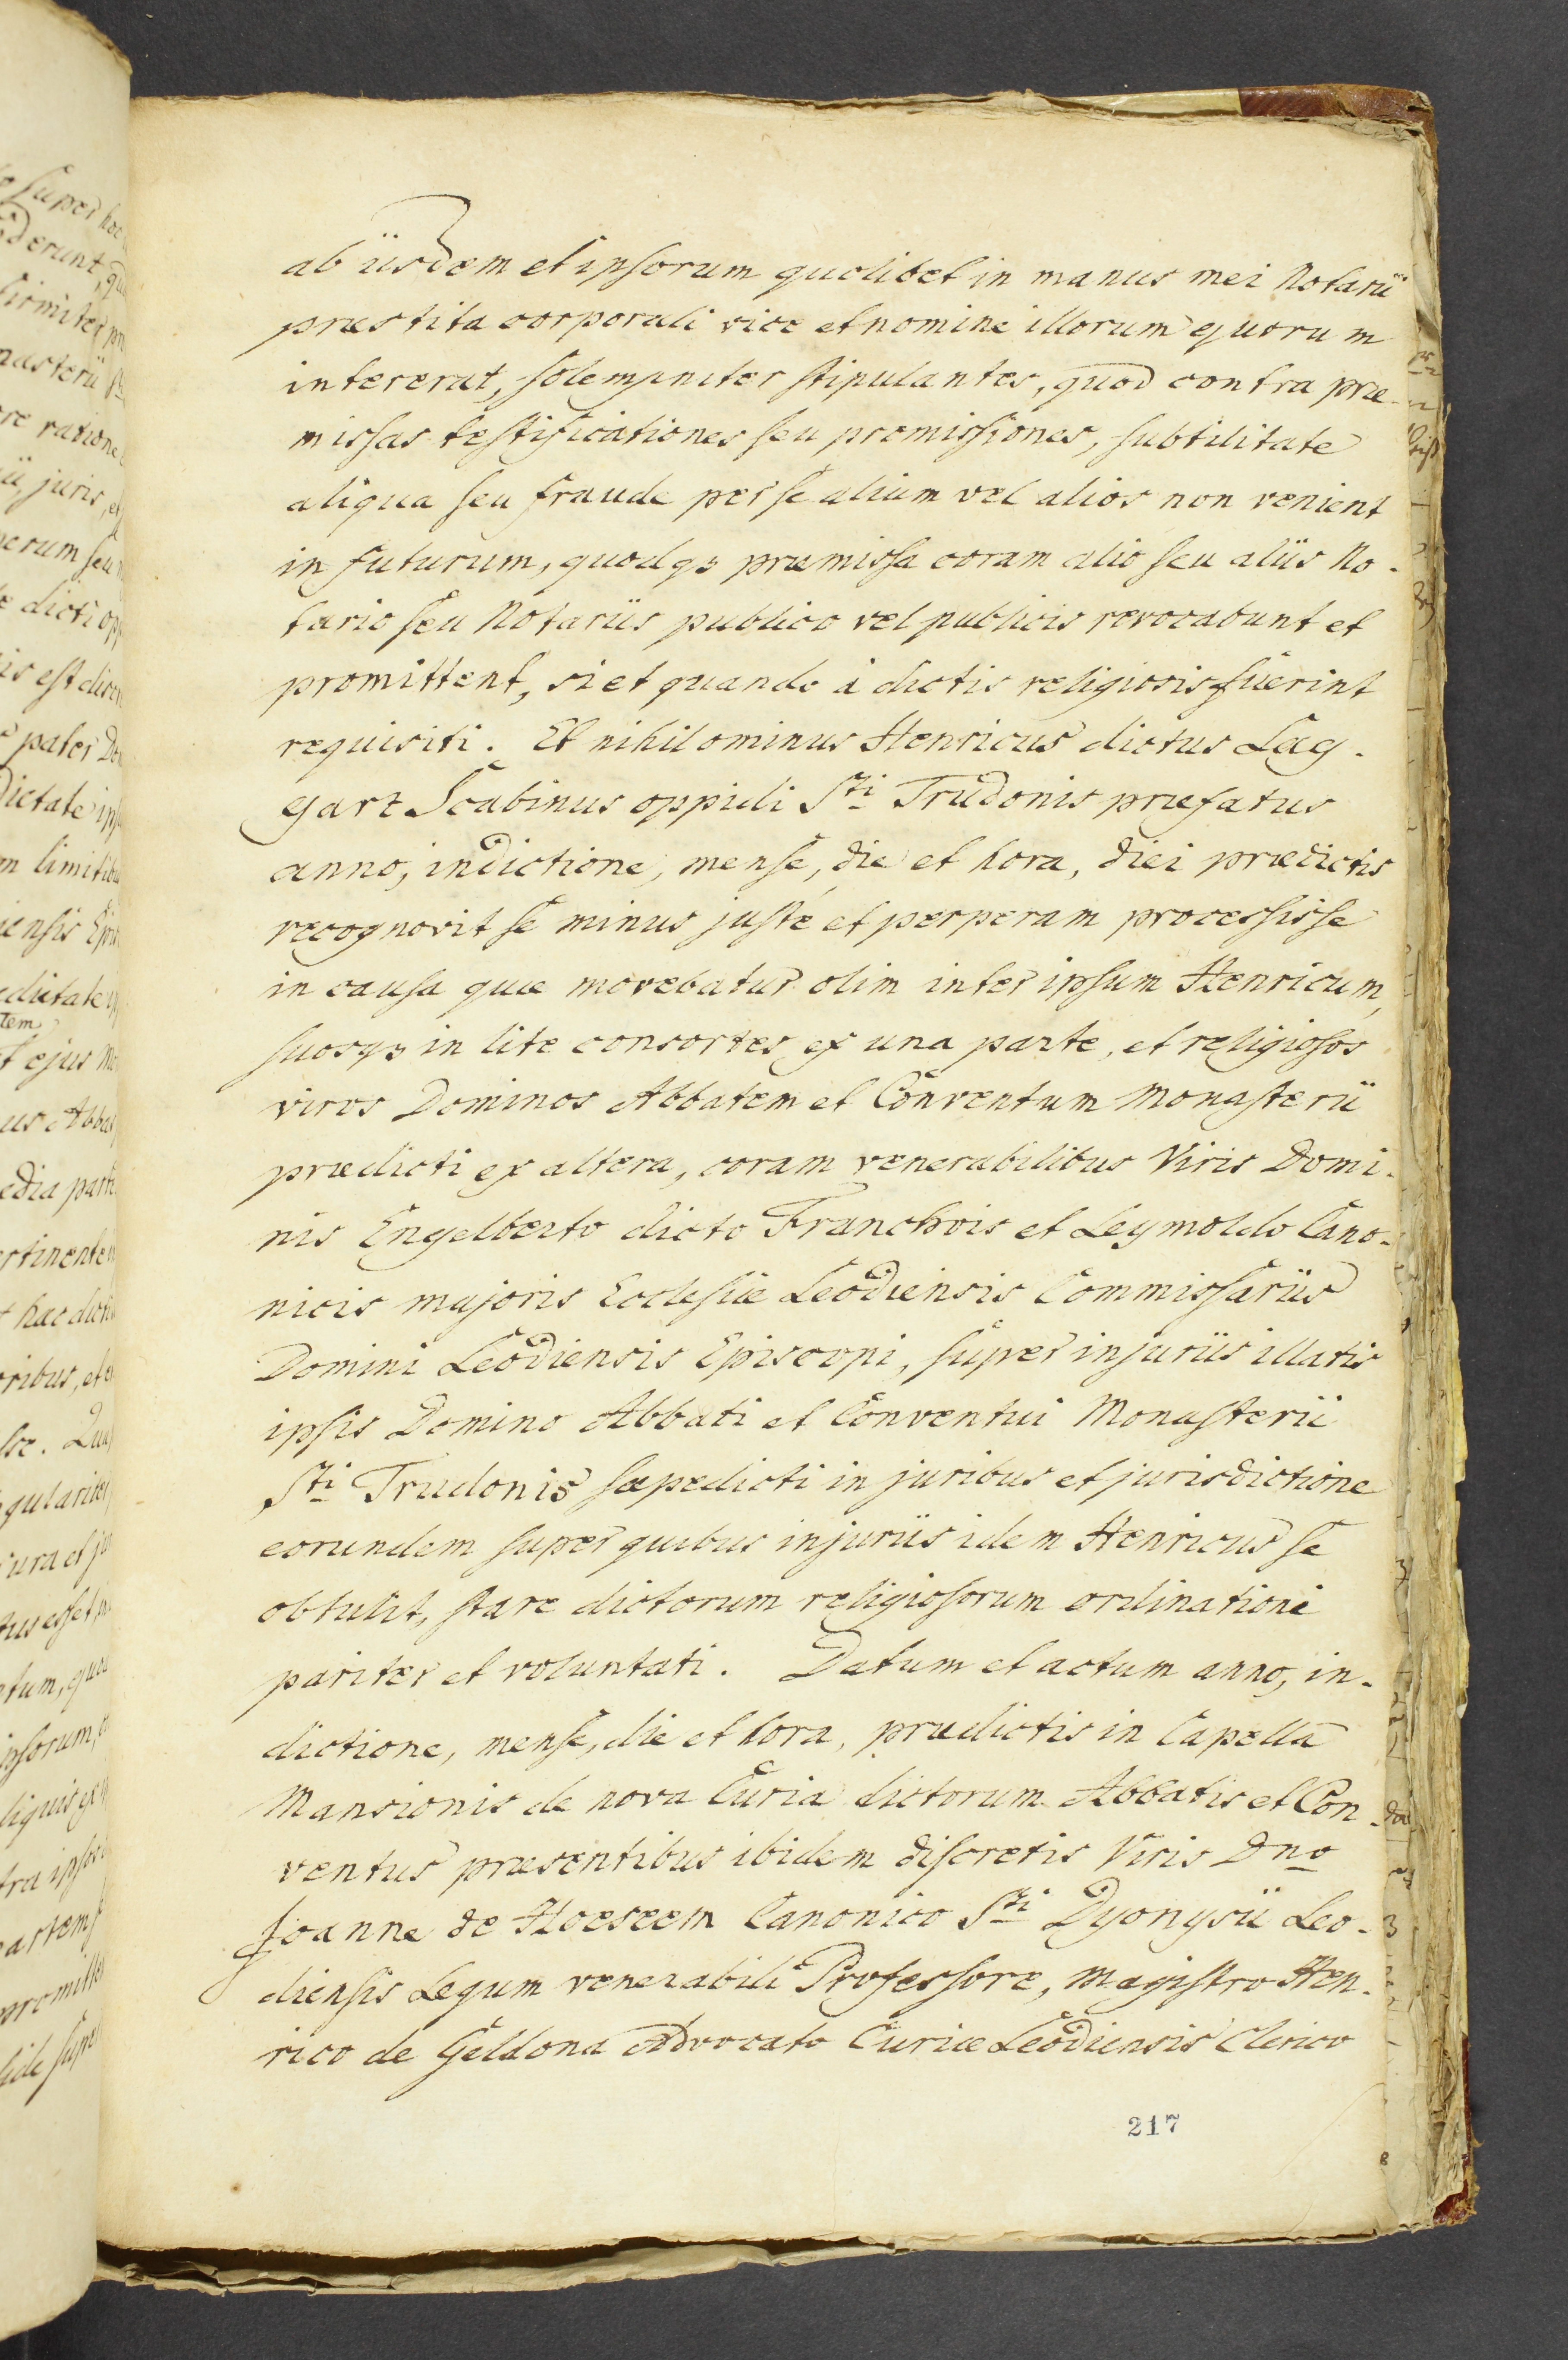 ab iisdem et ipsorum quolibet in manus mei Notarii
præstita corporali vice et nomine illorum quorum
intererat, solempniter stipulantes, quod contra præ-
missas testificationes seu promissiones, subtilitate
aliqua seu fraude per se alium vel alios non venient
in futurum, quodq3 præmissa coram alio seu aliis No-
tario seu Notariis publico vel publicis revocabunt et
promittent, si et quando à dictis religiosis fuerint
requisiti. Et nihilominus Henricus dictus Lag-
gart Scabinus oppidi Sti Trudonis præfatus
anno, indictione, mense, die et hora, diei prædictis
recognovit se minus juste et perperam processisse
in causa quæ movebatur olim inter ipsum Henricum,
suosq3 in lite consortes ex una parte, et religiosos
viros Dominos Abbatem et Conventum Monasterii
prædicti ex altera, coram venerabilibus Viris Domi-
nis Engelberto dicto Franchois et Leymoldo Cano-
nicis majoris Ecclesiæ Leodiensis Commissariis
Domini Leodiensis Episcopi, super injuriis illatis
ipsis Domino Abbati et Conventui Monasterii
Sti Trudonis sæpedicti in juribus et jurisdictione
eorundem super quibus injuriis idem Henricus se
obtulit, stare dictorum religiosorum ordinationi
pariter et voluntati. Datum et actum anno, in-
dictione, mense, die et hora, prædictis in Capella
Mansionis de nova Curia dictorum Abbatis et Con-
ventus præsentibus ibidem discretis Viris Dno
Joanne de Hoeseem Canonico Sti Dyonysii Leo-
diensis Legum venerabili Professore, Magistro Hen-
rico de Geldona Advocato Curiæ Leodiensis Clerico
217